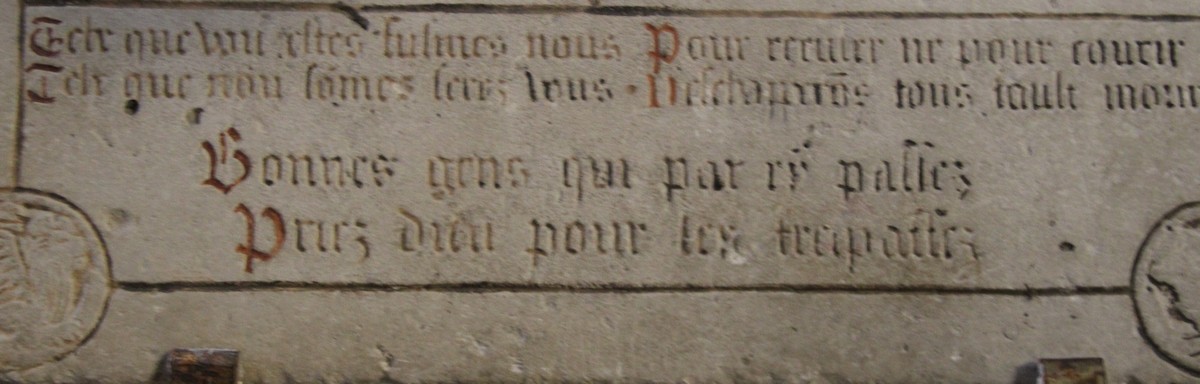 Telz que vou estes fusmes nous Pour reculer ne pour courir
Telz que nou sõmes serez vous · Neschapperõs tous fault mour
Bonnes gens qui par cy passez
Priez dieu pour les trespassez